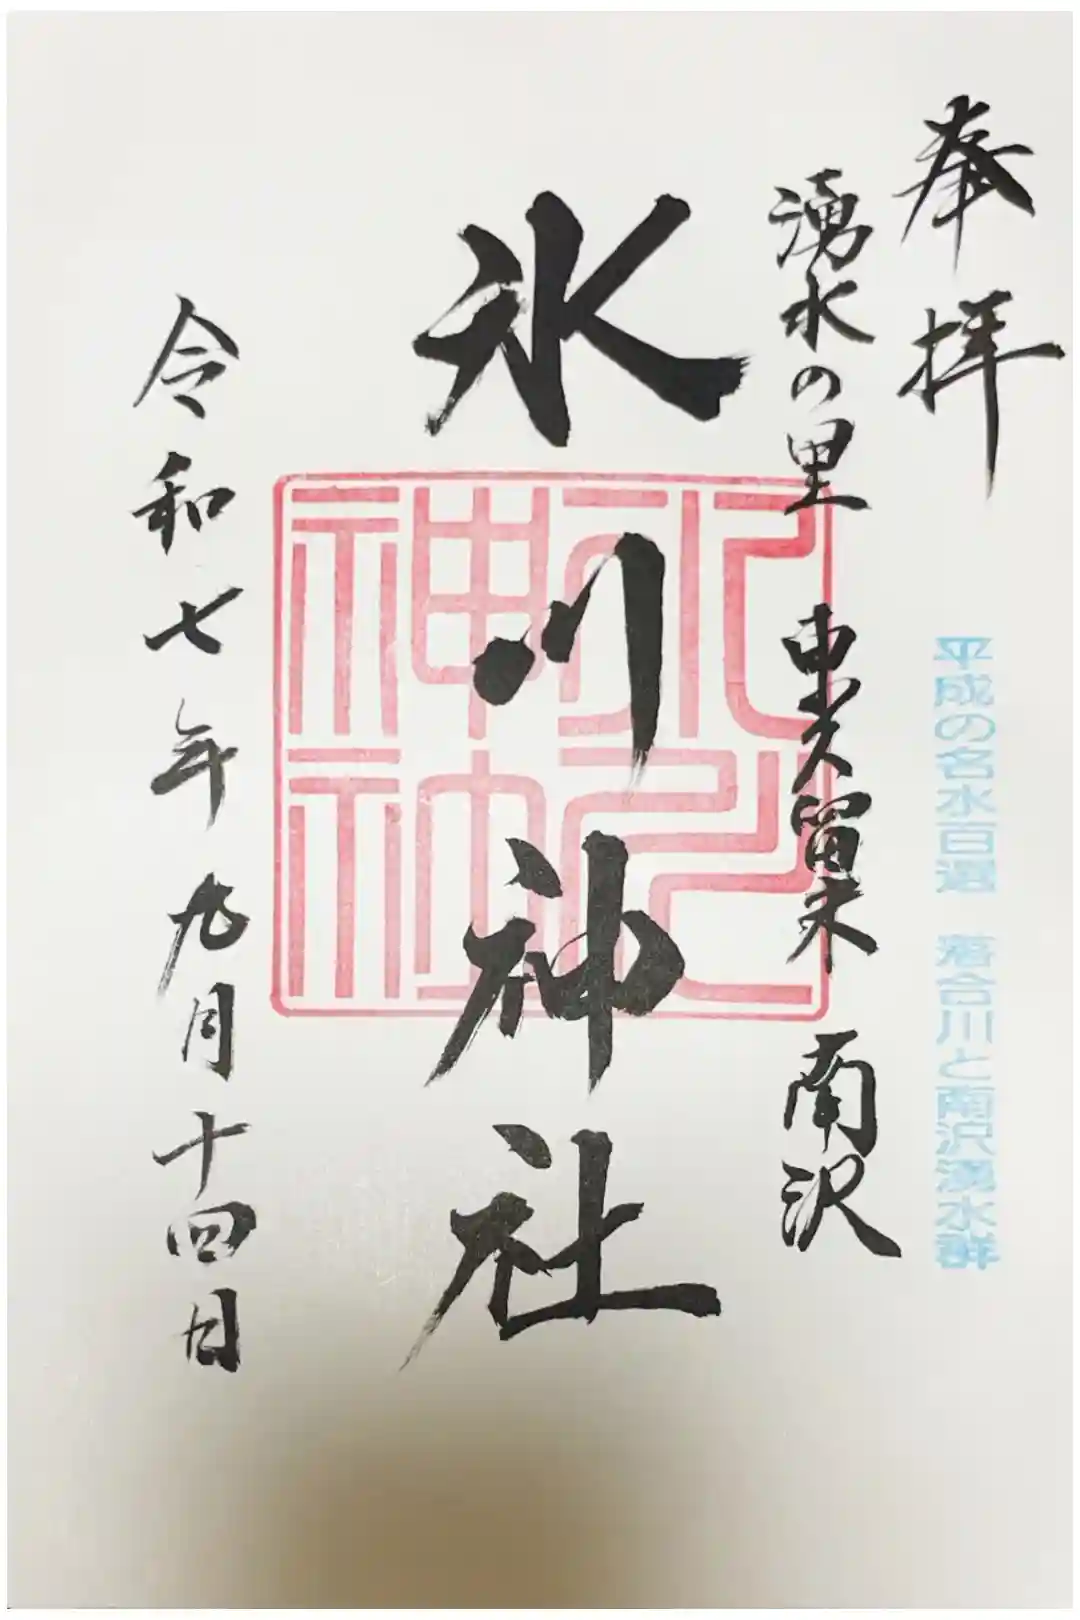 奉拝
平成の名水百選 落合川と南沢湧水群
湧水の里 東久留米 南沢
氷川神社
令和七年九月十四日